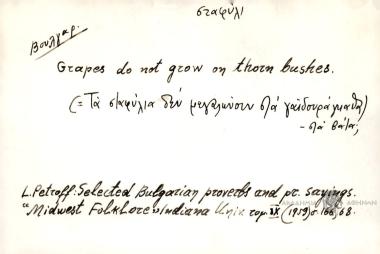 σταφύλι
Βουλγαρ.
Grapes do not grow on thorn bushes.
(= Τὰ σταφύλια δέν μεγαλώνουν στά γαϊδουράγκαθα)
- στά βάτα;
L. Petroff: Selected Bulgarian proverbs and pr. sayings.
"Midwest Folklore" Indiana Univ. τομ IX (1959) σ. 166, 68.
ΑΚΑΔΗΜΙΑ ΑΘΗΝΩΝ